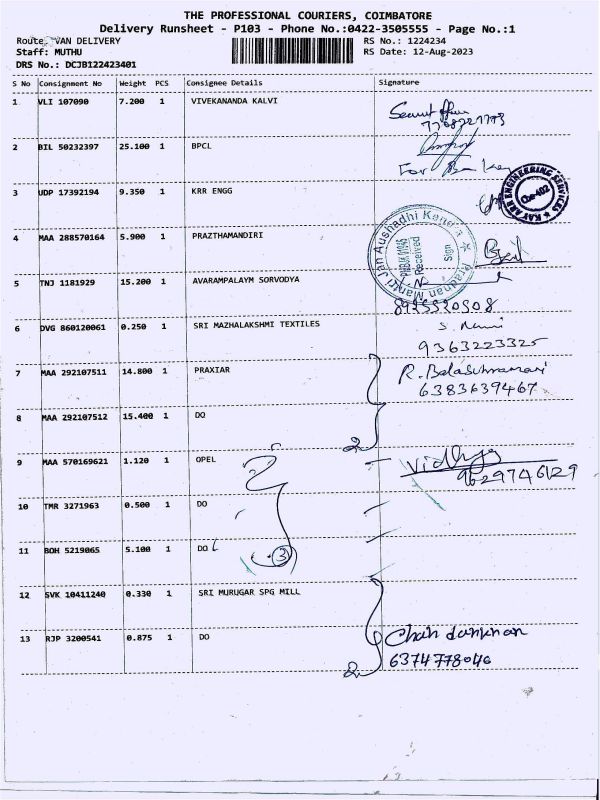 THE PROFESSIONAL COURIERS, COIMBATORE
Delivery Runsheet - P103 - Phone No.:0422-3505555 - Page No.:1
Route, VAN DELIVERY
RS No.: 1224234
Staff: MUTHU
RS Date: 12-Aug-2023
DRS No.: DCJB122423401
S No Consignment No Weight PCS Consignee Details Signature
1 VLI 107090 7.200 1 VIVEKANANDA KALVI
2 BIL 50232397 25.100 1 BPCL
3 UDP 17392194 9.350 1 KRR ENGG
KAY ARR ENGINEERING SERVICES
Cbe-402
4 MAA 288570164 5.900 1 PRAZTHAMANDIRI
Pradhan Mantri Jan Aushadhi Kendra
Received
Sign
5 TNJ 1181929 15.200 1 AVARAMPALAYM SORVODYA
8925520508
6 DVG 860120061 0.250 1 SRI MAZHALAKSHMI TEXTILES
9363223325
7 MAA 292107511 14.800 1 PRAXIAR
R. Balasubramani
6383639467
8 MAA 292107512 15.400 1 DO
2
9 MAA 570169621 1.120 1 OPEL
Vidhya
9629746129
10 TMR 3271963 0.500 1 DO
11 BOH 5219065 5.100 1 DO
3
12 SVK 10411240 0.330 1 SRI MURUGAR SPG MILL
13 RJP 3200541 0.875 1 DO
6374778046
2